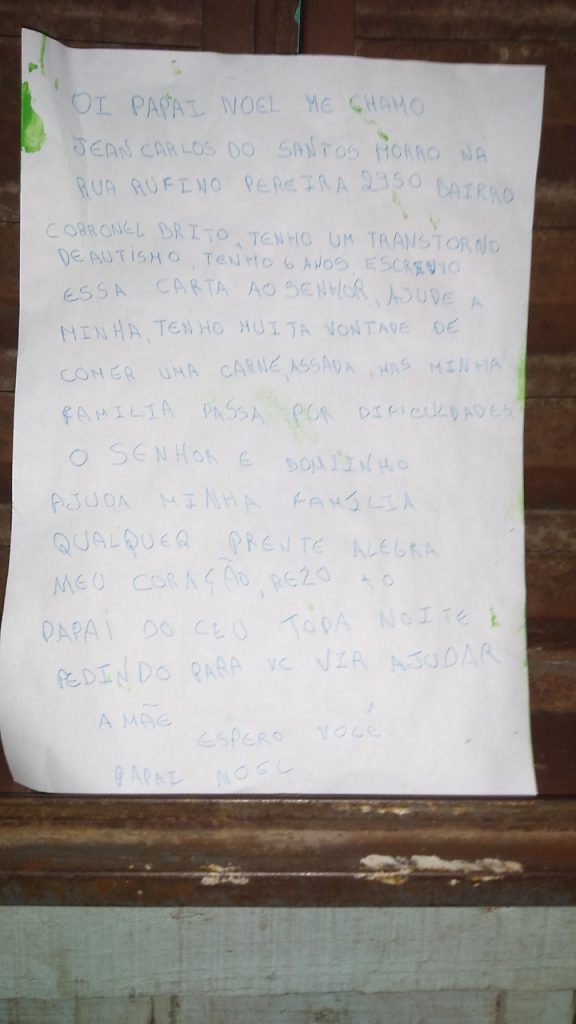 OI PAPAI NOEL ME CHAMO
JEAN CARLOS DO SANTOS MORRO NA
RUA RUFINO PEREIRA 2950 BAIRRO
CORRONEL BRITO, TENHO UM TRANSTORNO
DE AUTISMO, TENHO 6 ANOS, ESCREVO
ESSA CARTA AO SENHOR, AJUDE A
MINHA, TENHO MUITA VONTADE DE
COMER UMA CARNE, ASSADA, MAS MINHA
FAMILIA PASSA POR DIFICULDADES
O SENHOR E BONZINHO
AJUDA MINHA FAMÍLIA
QUALQUER PRENTE ALEGRA
MEU CORAÇÃO, REZO AO
PAPAI DO CEU TODA NOITE
PEDINDO PARA VC VIR AJUDAR
A MÃE
ESPERO VOCÊ
PAPAI NOEL